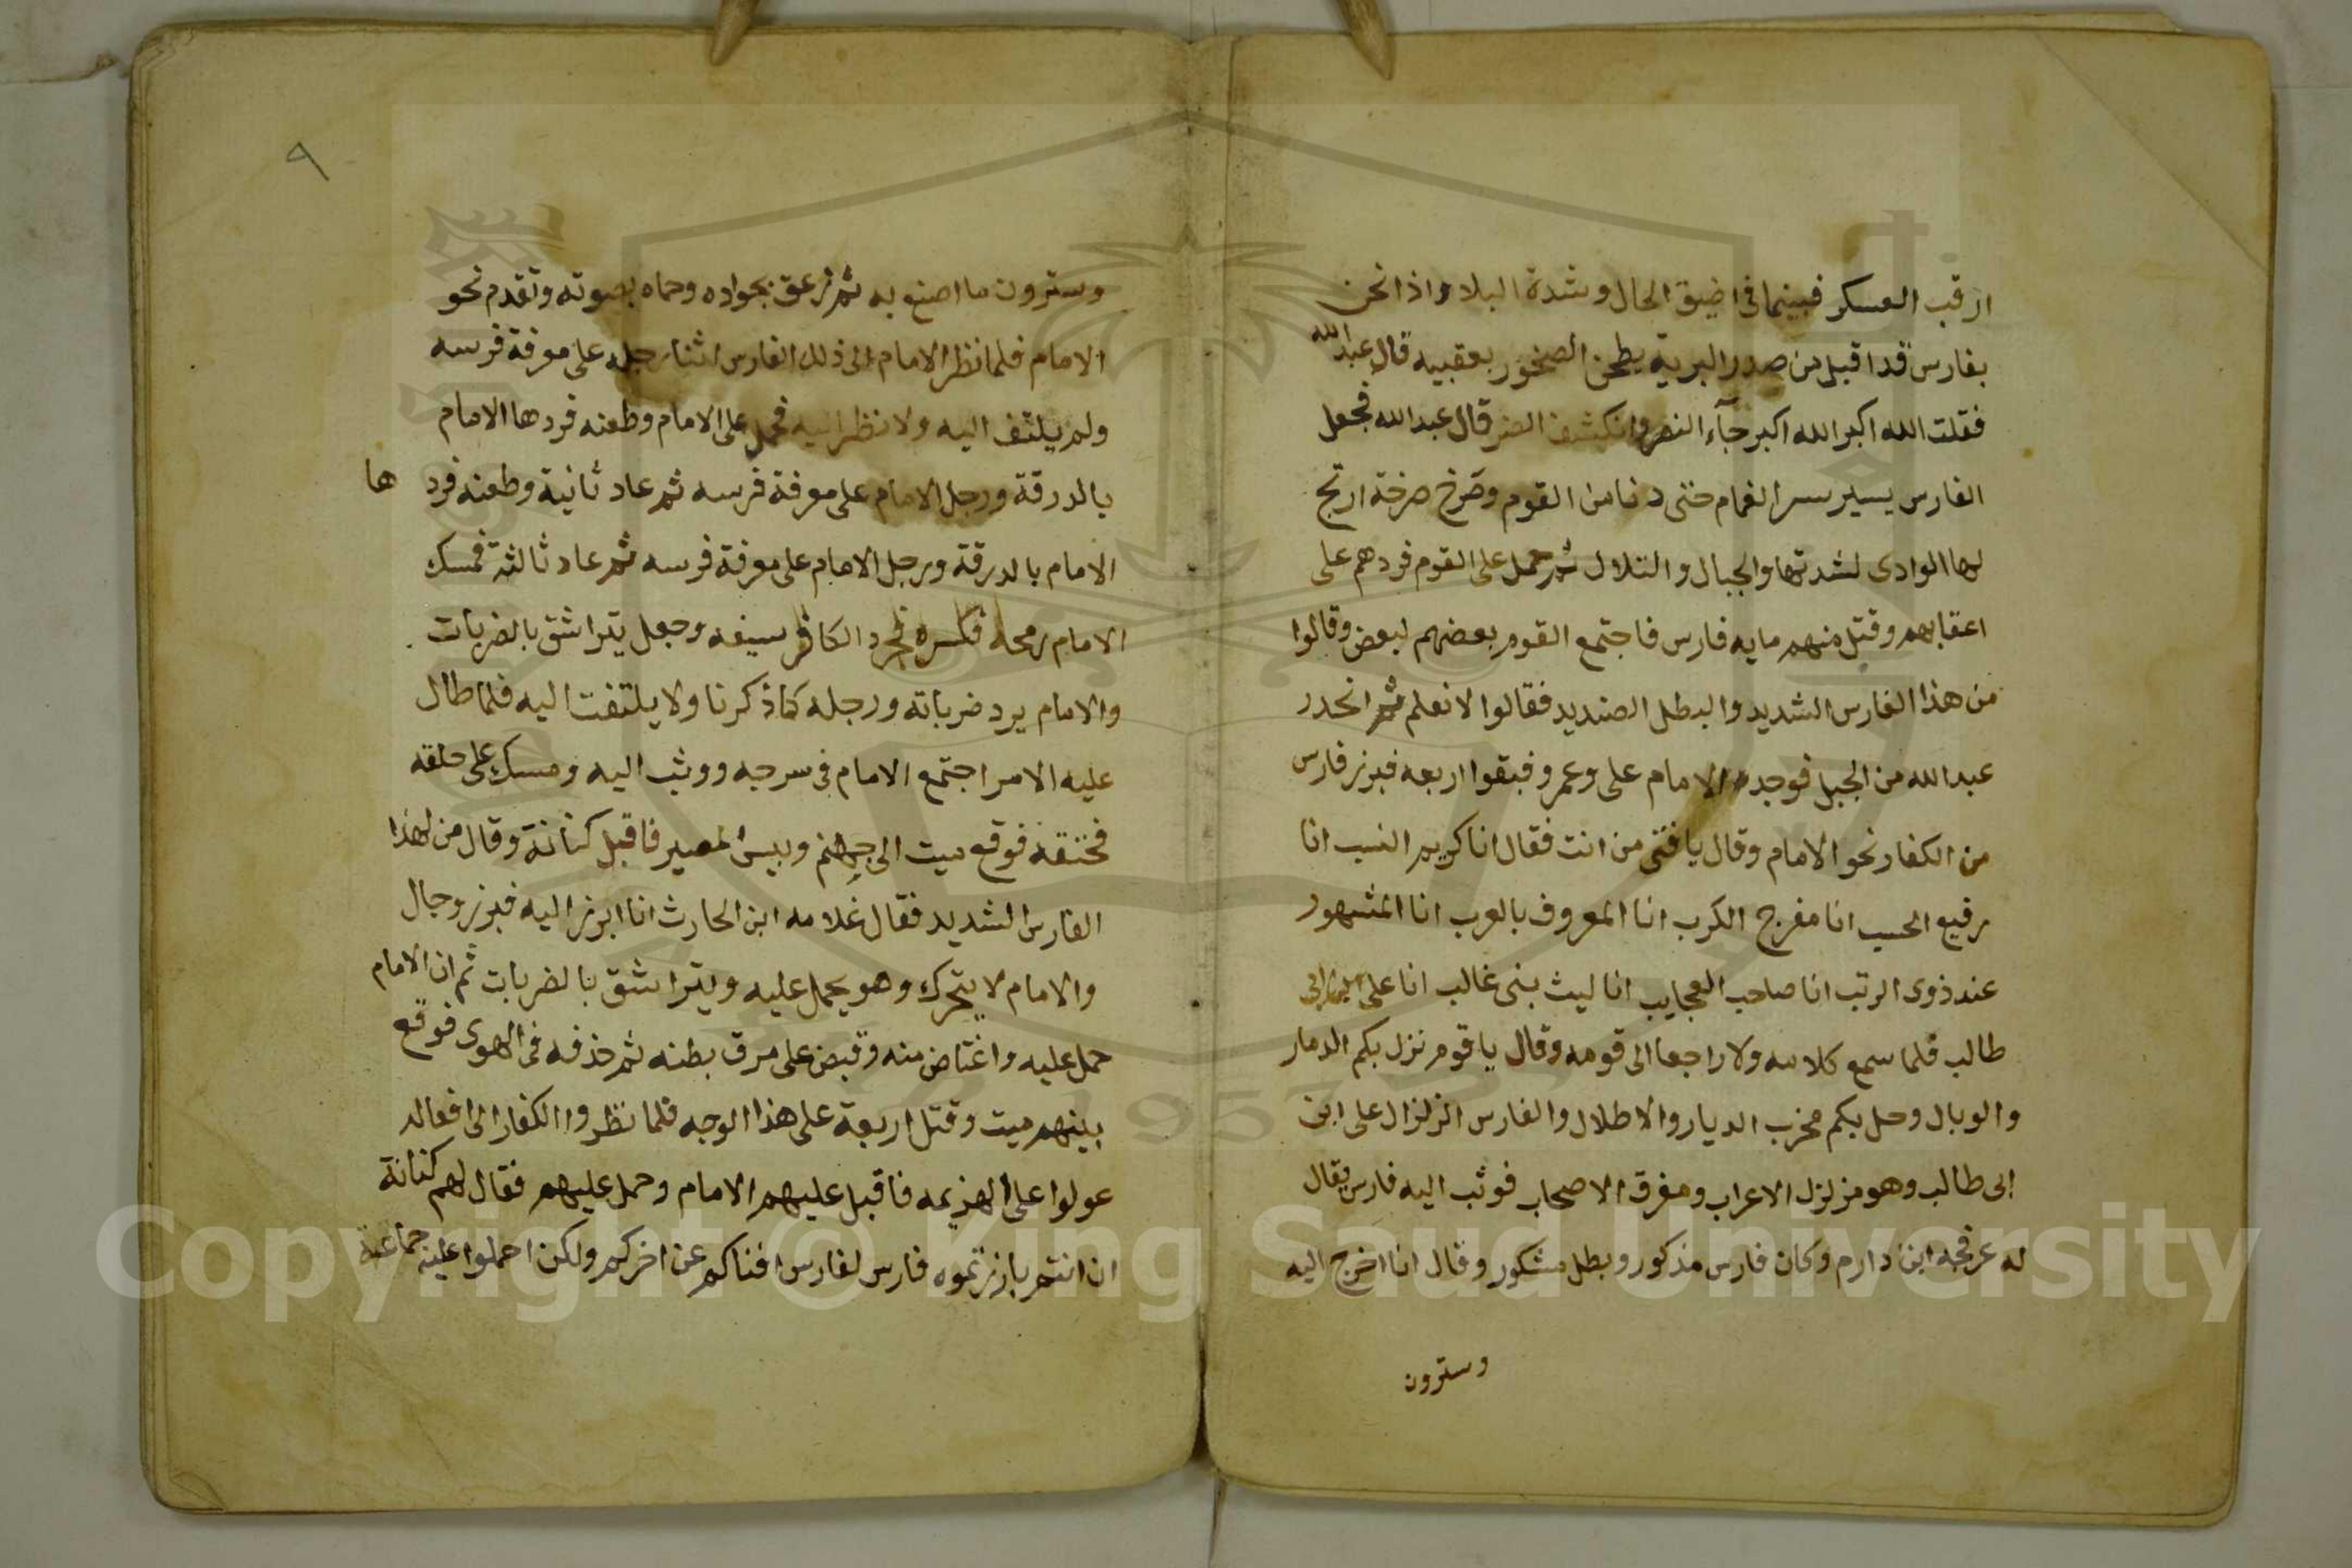 ارقب العسكر فبينما فى اضيق الحال وشدة البلا واذا نحن
بفارس قد اقبل من صدر البرية يطحن الصخور بعقبيه قال عبدالله
فقلت الله اكبر الله اكبر جآء النصر وانكشف الضر قال عبدالله فجعل
الفارس يسير سير الغمام حتى دنا من القوم وصرخ صرخة ارتج
لها الوادى لشدتها والجبال والتلال ثم حمل على القوم فردهم على
اعقابهم وقتل منهم مايه فارس فاجتمع القوم بعضهم لبعض وقالوا
من هذا الفارس الشديد والبطل الصنديد فقالوا لا نعلم ثم انحدر
عبدالله من الجبل فوجد الامام على وعمرو فبقوا اربعه فبرز فارس
من الكفار نحو الامام وقال يا فتى من انت فقال انا كريم النسب انا
رفيع الحسب انا مفرج الكرب انا المعروف بالعرب انا المشهور
عند ذوى الرتب انا صاحب العجايب انا ليث بنى غالب انا على ابن ابى
طالب فلما سمع كلامه ولا راجعا الى قومه وقال يا قوم نزل بكم الدمار
والوبال وحل بكم مخرب الديار والاطلال والفارس الزلزال على ابن
ابى طالب وهو مزلزل الاعراب ومفرق الاصحاب فوثب اليه فارس يقال
له عرفجه ابن دارم وكان فارس مذكور وبطل مشكور وقال انا اخرج اليه
وسترون
٩
وسترون ما اصنع به ثم زعق بجواده وحماه بصوته وتقدم نحو
الامام فلما نظر الامام الى ذلك الفارس اثنا رجله على معرفة فرسه
ولم يلتف اليه ولا نظر اليه فحمل على الامام وطعنه فردها الامام
بالدرقة ورجل الامام على معرفة فرسه ثم عاد ثانية وطعنه فردها
الامام بالدرقة ورجل الامام على معرفة فرسه ثم عاد ثالثة فمسك
الامام رمحه فكسره فجرد الكافر سيفه وجعل يتراشق بالضربات
والامام يرد ضرباته ورجله كما ذكرنا ولا يلتفت اليه فلما طال
عليه الامر اجتمع الامام فى سرجه ووثب اليه ومسك على حلقه
فخنقه فوقع ميت الى جهنم وبيس المصير فاقبل كنانة وقال من لهذا
الفارس الشديد فقال غلامه ابن الحارث انا ابرز اليه فبرز وجال
والامام لا يتحرك وهو يحمل عليه ويتراشق بالضربات ثم ان الامام
حمل عليه واغتاض منه وقبض على مرق بطنه ثم حذفه فى الهوى فوقع
بينهم ميت وقتل اربعة على هذا الوجه فلما نظروا الكفار الى افعاله
عولوا على الهزيمه فاقبل عليهم الامام وحمل عليهم فقال لهم كنانة
ان انتم بارزتموه فارس لفارس افناكم عن اخركم ولكن احملوا عليه جماعة
Copyright © King Saud University
1957